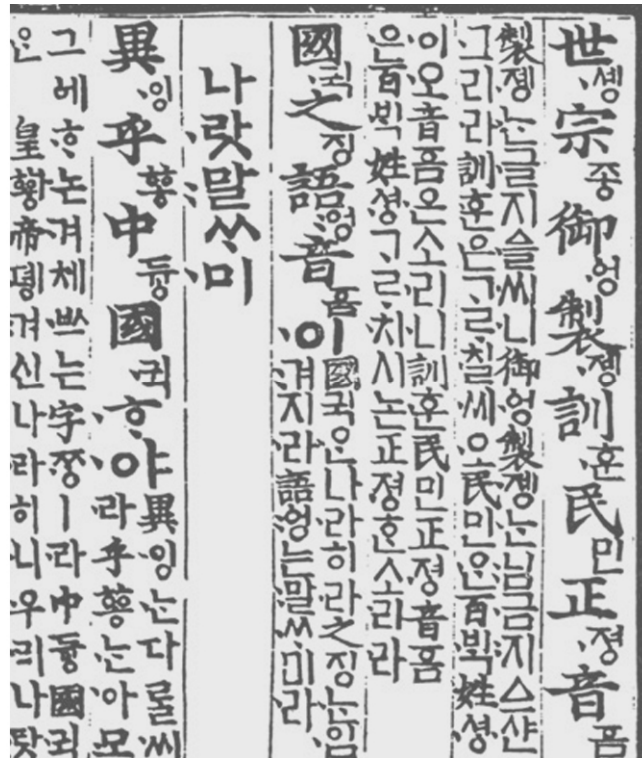 世솅〮宗조ᇰ御ᅌᅥᆼ〮製졩〮訓훈〮民민正져ᇰ〮音ᅙᅳᆷ
製졩〮는〮글〮지〮ᅀᅳᆯ씨〮니〮御ᅌᅥᆼ〮製졩〮는〮님〮금〮지〮ᅀᅳ샨〮
그〮리〮라〮訓훈〮은〮ᄀᆞᄅᆞ〮칠〮씨〮오〮民민ᄋᆞᆫ〮百ᄇᆡᆨ〮姓셔ᇰ〮
이〮오〮音ᅙᅳᆷ은〮소〮리〮니〮訓훈〮民민正져ᇰ〮音ᅙᅳᆷ
은〮百ᄇᆡᆨ〮姓셔ᇰ〮ᄀᆞᄅᆞ〮치〮시〮논〮正져ᇰ〮ᄒᆞᆫ소〮리〮라〮
國귁〮之징語ᅌᅥᆼ〮音ᅙᅳᆷ이〮
國귁〮ᄋᆞᆫ〮나〮라〮히〮라〮之징ᄂᆞᆫ〮입
겨지〮라〮語ᅌᅥᆼ〮는〮말〮ᄊᆞ미〮라〮
나랏〮말〯ᄊᆞ미〮
異잉〮乎ᅘᅩᆼ中듀ᇰ國귁〮ᄒᆞ〮야〮
異잉〮ᄂᆞᆫ〮다ᄅᆞᆯ씨
라〮乎ᅘᅩᆼᄂᆞᆫ〮아〮모
그ᅌᅦᄒᆞ논〮겨체ᄡᅳ는〮字ᄍᆞᆼ〮ㅣ라〮中듀ᇰ國귁〮
ᄋᆞᆫ〮皇ᅘᅪᇰ帝뎽〮겨신나라히니우리나랏